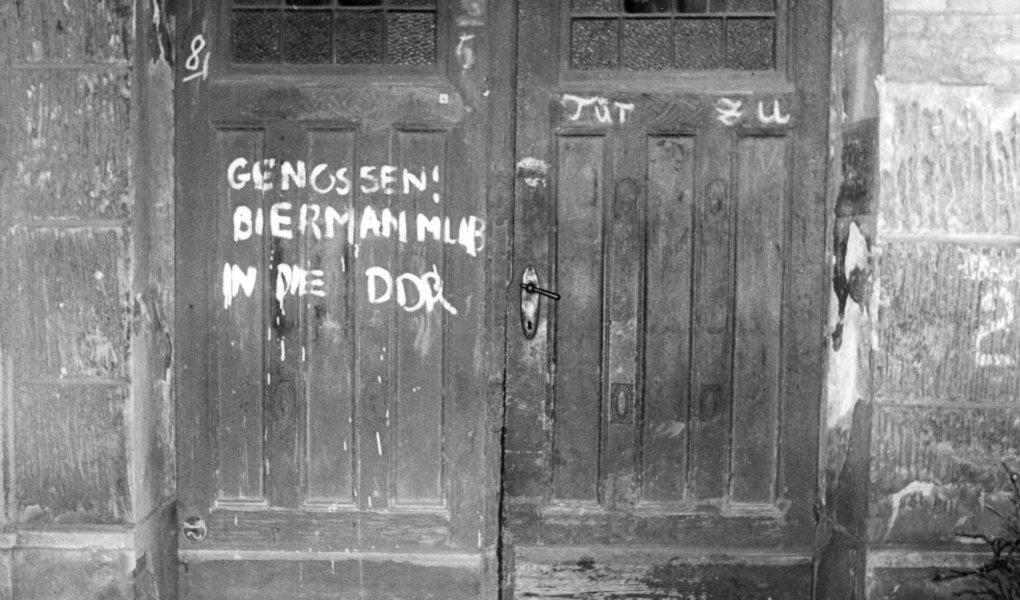 81
5
TÜR ZU
GENOSSEN!
BIERMANN LIB
IN DIE DDR
2